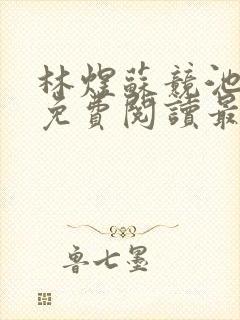 林煜蘇競池
免費閱讀最
魯七墨